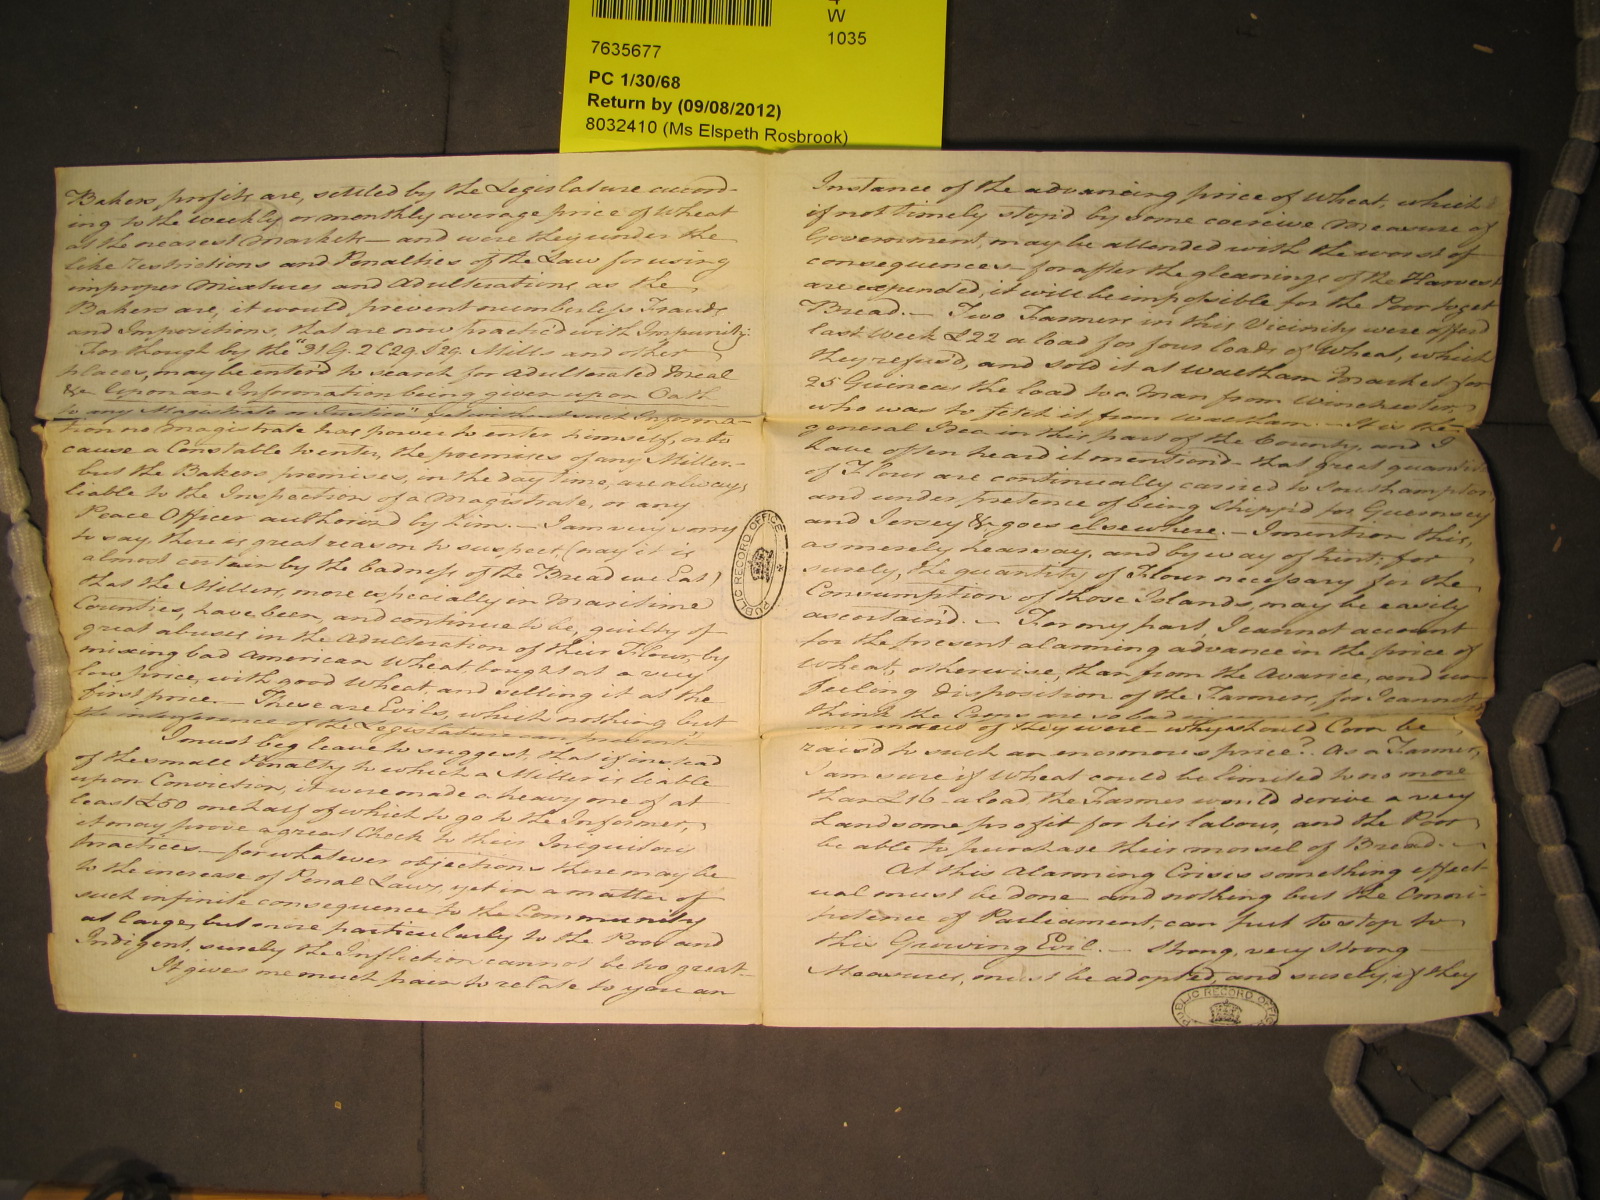 4
W
1035
7635677
PC 1/30/68
Return by (09/08/2012)
8032410 (Ms Elspeth Rosbrook)
Bakers, profits are, settled by the Legislature accord-
ing to the weekly or monthly average price of Wheat
at the nearest Markets — and were they under the
like restrictions and Penalties of the Law for using
improper Mixtures and Adulterations, as the
Bakers are, it would prevent numberless Frauds
and Impositions, that are now practic'd with Impunity.
For though by the "31 G. 2 C 29. S 29. Mills and other
places, may be enter'd to search for adulterated Meal
&c Upon an Information being given upon Oath
to any Magistrate or Justice" yet without such Informa-
tion no Magistrate has power to enter himself, or to
cause a Constable to enter, the premises of any Miller. —
but the Bakers premises, in the day time, are always
liable to the Inspection of a Magistrate, or any
Peace Officer authorized by him. — I am very sorry
to say, there is great reason to suspect, (nay it is
almost certain by the badness of the Bread we Eat)
that the Millers, more especially in Maritime
Counties, have been, and continue to be, guilty of
great abuses in the Adulteration of their Flour, by
mixing bad American Wheat, bought at a very
low price, with good Wheat, and selling it at the
first price. — These are Evils, which nothing but
the interference of the Legislature can prevent
I must beg leave to suggest, that if instead
of the small Penalty to which a Miller is liable
upon Conviction, it were made a heavy one of at
least £50 one half of which to go to the Informer,
it may prove a great Check to their Iniquitous
Practices — for whatever objections there may be
to the increase of Penal Laws, yet in a matter of
such infinite consequence to the Community
at large, but more particularly to the Poor and
Indigent, surely the Infliction cannot be too great —
It gives me much pain to relate to you an
Instance of the advancing price of Wheat, which
if not timely stop'd by some coercive Measure of
Government, may be attended with the worst of
consequences — for after the gleanings of the Harvest
are expended, it will be impossible for the Poor to get
Bread. — Two Farmers in this Vicinity were offer'd
last Week £22 a load for four loads of Wheat, which
they refus'd, and sold it at Waltham Market for
25 Guineas the load to a Man from Winchester,
who was to fetch it from Waltham. — It is the
general Idea in this part of the County, and I
have often heard it mention'd — that great quantities
of Flour are continually carried to Southampton,
and under pretence of being Shipp'd for Guernsey
and Jersey &c goes elsewhere. — I mention this,
as merely hearsay, and by way of hint; for
surely, the quantity of Flour necessary for the
Consumption of those Islands, may be easily
ascertain'd. — For my part, I cannot account
for the present alarming advance in the price of
Wheat, otherwise, than from the Avarice, and un-
feeling disposition of the Farmers, for I cannot
think the Crops are so bad
and indeed if they were — why should Corn be
rais'd to such an enormous price? As a Farmer,
I am sure if Wheat could be limited to no more
than £16 a load, the Farmer would derive a very
handsome profit for his labour, and the Poor
be able to purchase their morsel of Bread. —
At this Alarming Crisis something effect-
ual must be done and nothing but the Omni-
potence of Parliament, can put to stop to
this Growing Evil. — Strong, very strong
Measures, must be adopted, and surely, if they
PUBLIC RECORD OFFICE
PUBLIC RECORD OFFICE